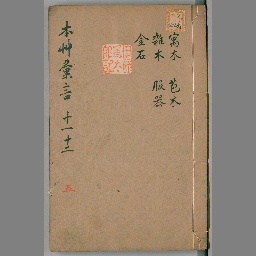 寓木　苞木
雜木　服器
金石
本艸彙言 十一十二
五